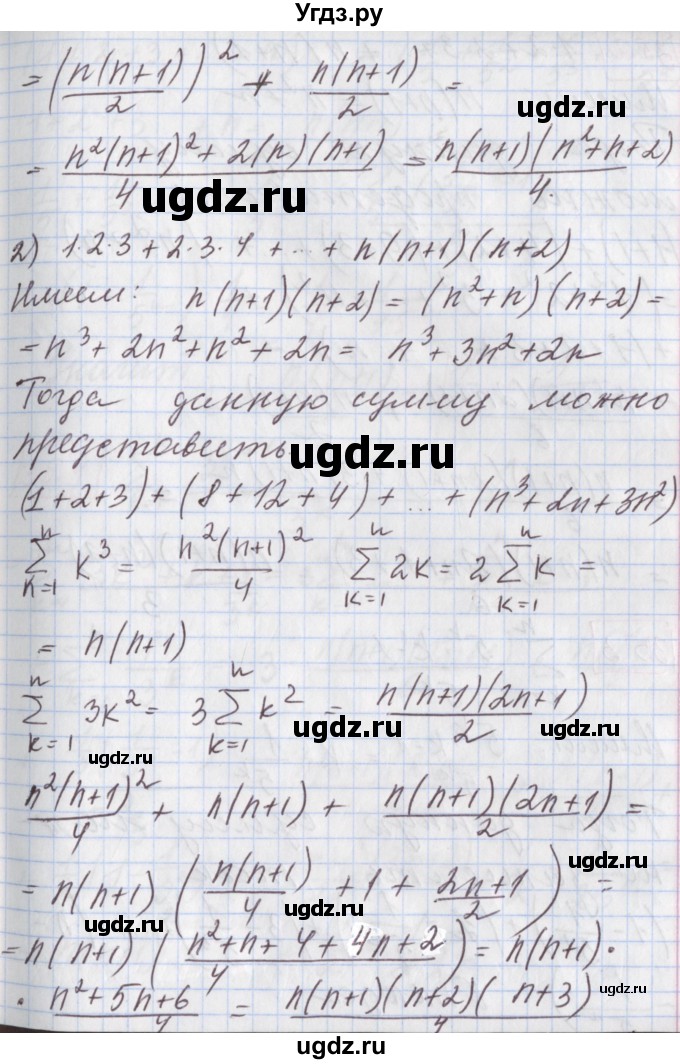 Угдз.ру
= (n(n+1)/2)² + n(n+1)/2 =
ugdz.ru
= (n²(n+1)² + 2(n)(n+1))/4 = n(n+1)(n²+n+2)/4.
ugdz.ru
2) 1·2·3 + 2·3·4 + ... + n(n+1)(n+2)
Имеем: n(n+1)(n+2) = (n²+n)(n+2) =
= n³ + 2n² + n² + 2n = n³ + 3n² + 2n
Тогда данную сумму можно
представить
ugdz.ru
(1+2+3) + (8+12+4) + ... + (n³+2n+3n²)
ugdz.ru
∑ⁿ_{n=1} k³ = n²(n+1)²/4 ∑ⁿ_{k=1} 2k = 2∑ⁿ_{k=1} k =
= n(n+1)
ugdz.ru
∑ⁿ_{k=1} 3k² = 3∑ⁿ_{k=1} k² = n(n+1)(2n+1)/2
ugdz.ru ugdz.ru
n²(n+1)²/4 + n(n+1) + n(n+1)(2n+1)/2 =
ugdz.ru
= n(n+1) (n(n+1)/4 + 1 + (2n+1)/2) =
ugdz.ru ugdz.ru
= n(n+1) ((n²+n+4+4n+2)/4) = n(n+1)·
· (n²+5n+6)/4 = n(n+1)(n+2)(n+3)/4
ugdz.ru ugdz.ru